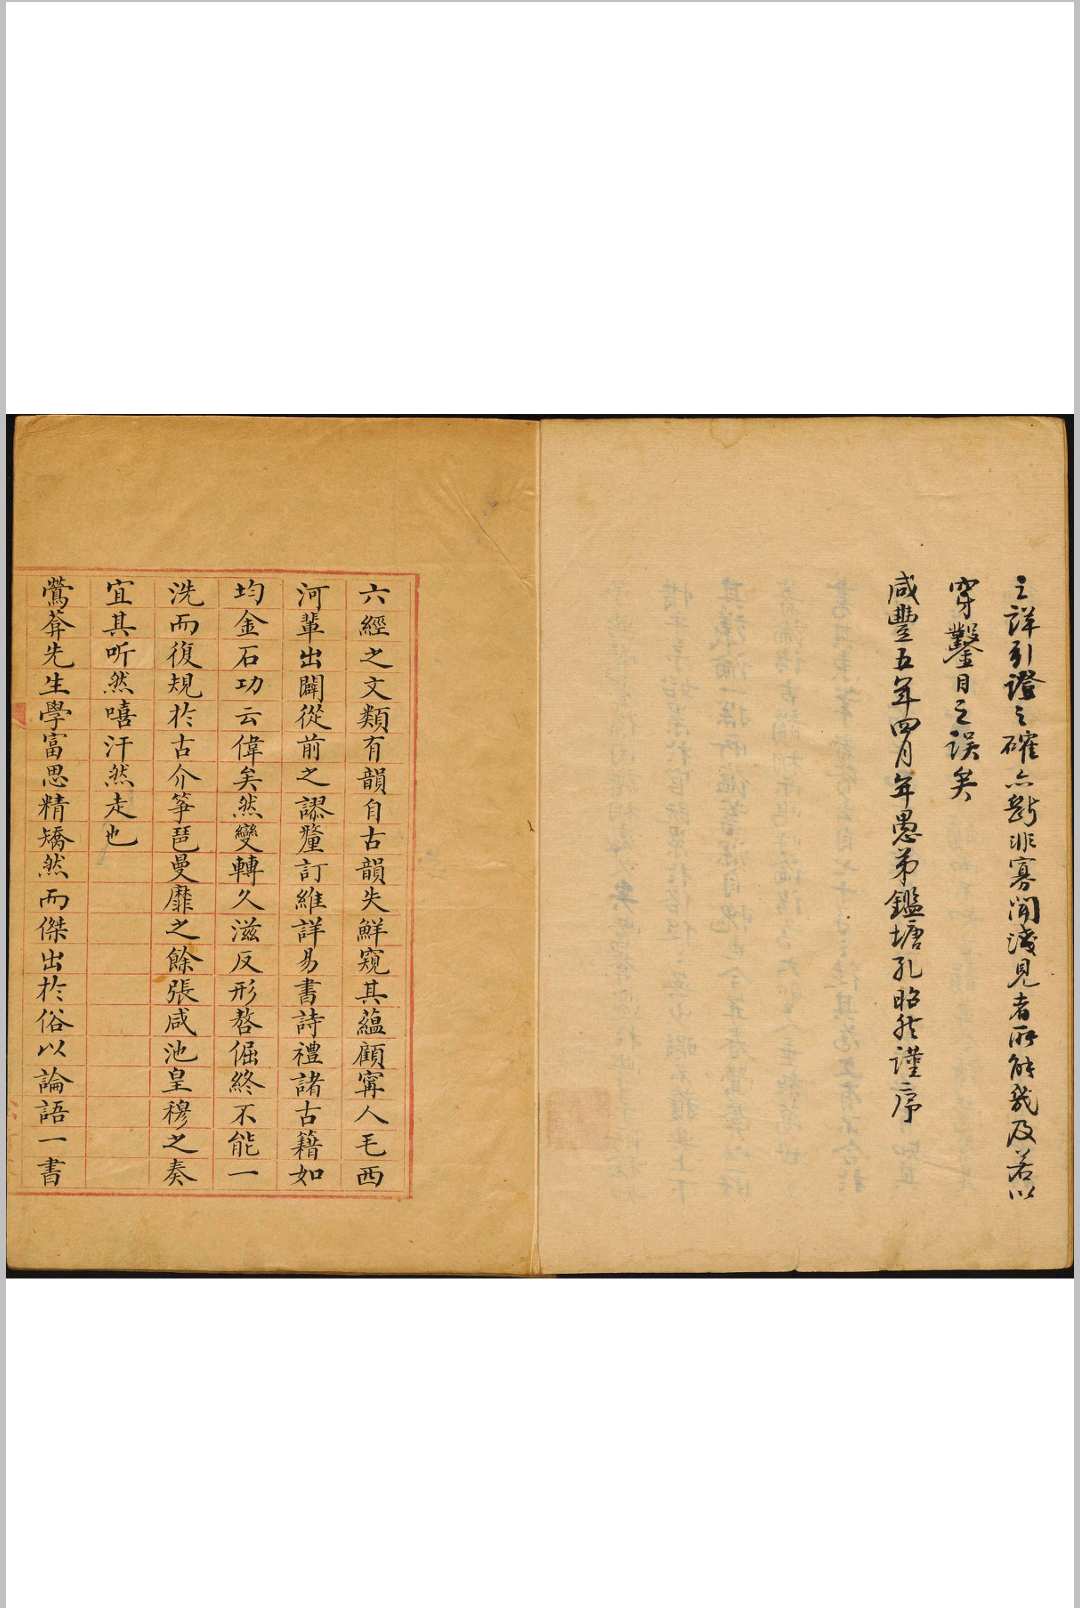 之詳引證之確亦斷非寡聞淺見者所能幾及若以
穿鑿目之誤矣
咸豐五年四月年愚弟鑑塘孔昭然謹序
六經之文類有韻自古韻失鮮窺其蘊顧寗人毛西
河輩出闢從前之謬釐訂維詳易書詩禮諸古籍如
均金石功云偉矣然變轉久滋反形嗸倔終不能一
洗而復規於古介箏琶曼靡之餘張咸池皇穆之奏
宜其听然嘻汗然走也
鶯莾先生學富思精矯然而傑出於俗以論語一書